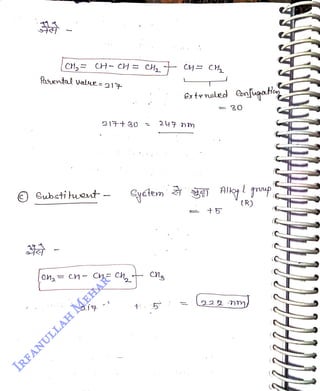 जैसे -
CH₂ = CH - CH = CH₂ + CH = CH₂
Parental value = 217
Extended Conjugation
= 30
217 + 30 = 247 nm
© Substituent - System से जुड़ा Alkyl group
(R)
= +5
जैसे -
CH₂ = CH - CH = CH₂ - CH₃
217 + 5 = 222 nm
IRFANULLAH MEHAR